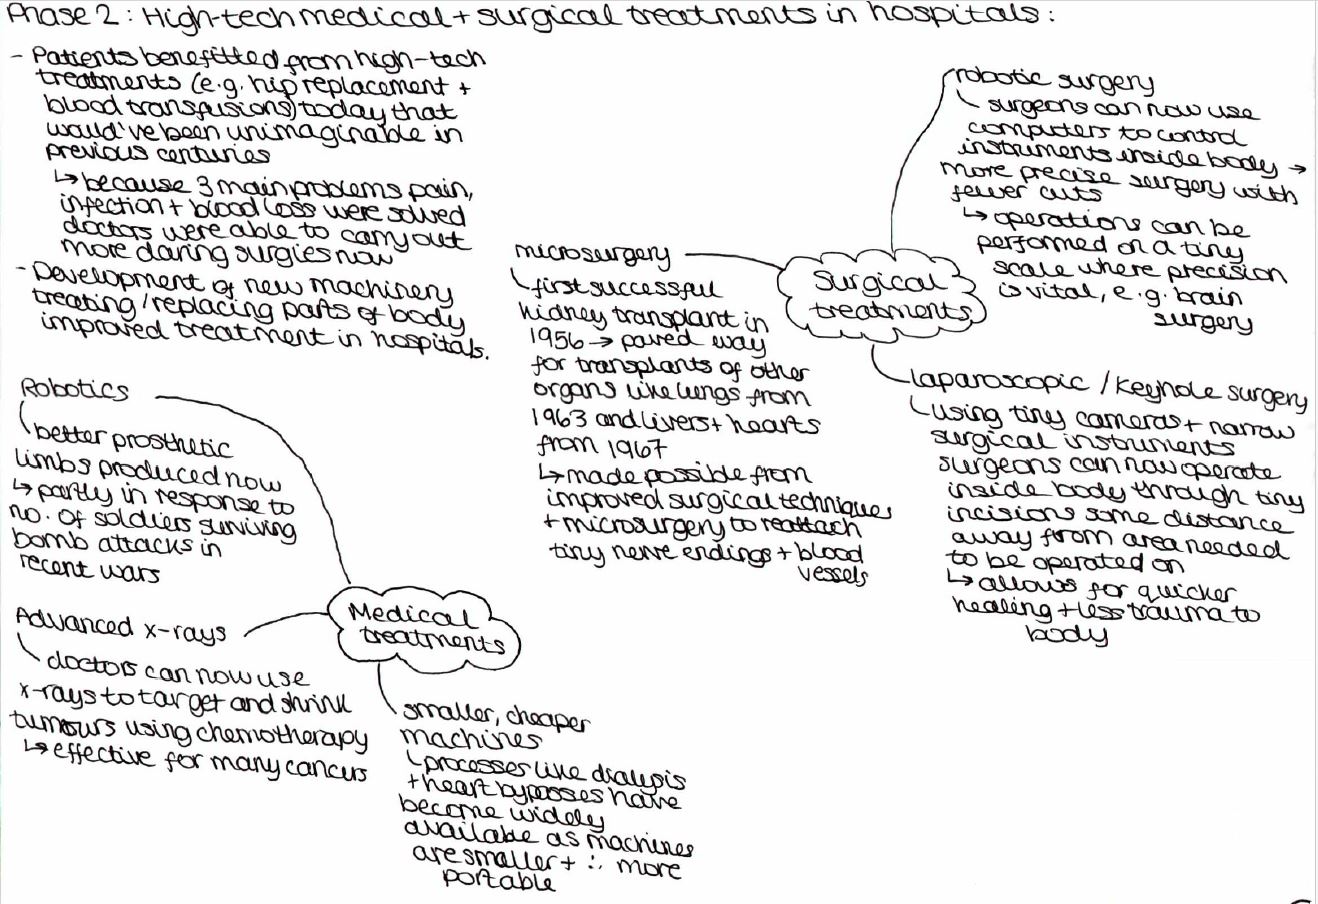 Phase 2: High-tech medical + surgical treatments in hospitals:
- Patients benefitted from high-tech
treatments (e.g. hip replacement +
blood transfusions) today that
would've been unimaginable in
previous centuries
↳ because 3 main problems pain,
infection + blood loss were solved
doctors were able to carry out
more daring surgies now
- Development of new machinery
treating/replacing parts of body
improved treatment in hospitals.
Surgical
treatments
robotic surgery
surgeons can now use
computers to control
instruments inside body →
more precise surgery with
fewer cuts
↳ operations can be
performed on a tiny
scale where precision
is vital, e.g. brain
surgery
microsurgery
first successful
kidney transplant in
1956 → paved way
for transplants of other
organs like lungs from
1963 and livers + hearts
from 1967
↳ made possible from
improved surgical techniques
+ microsurgery to reattach
tiny nerve endings + blood
vessels
laparoscopic / keyhole surgery
using tiny cameras + narrow
surgical instruments
surgeons can now operate
inside body through tiny
incisions some distance
away from area needed
to be operated on
↳ allows for quicker
healing + less trauma to
body
Medical
treatments
Robotics
better prosthetic
limbs produced now
↳ partly in response to
no. of soldiers surviving
bomb attacks in
recent wars
Advanced x-rays
doctors can now use
x-rays to target and shrink
tumours using chemotherapy
↳ effective for many cancers
smaller, cheaper
machines
processes like dialysis
+ heart bypasses have
become widely
available as machines
are smaller + ∴ more
portable